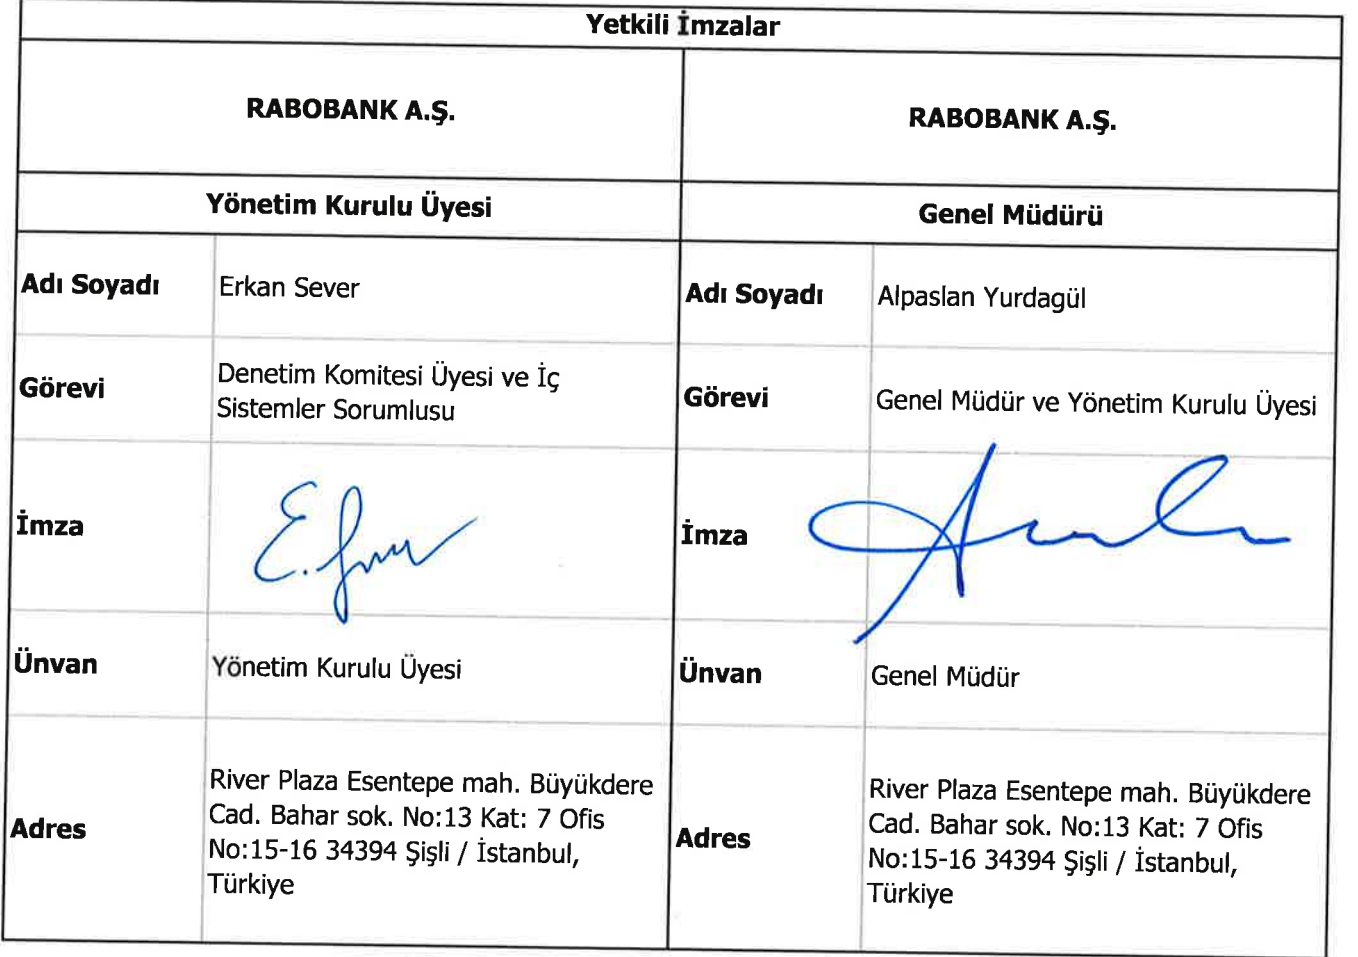 Yetkili İmzalar
RABOBANK A.Ş.
RABOBANK A.Ş.
Yönetim Kurulu Üyesi
Genel Müdürü
Adı Soyadı
Erkan Sever
Adı Soyadı
Alpaslan Yurdagül
Görevi
Denetim Komitesi Üyesi ve İç
Sistemler Sorumlusu
Görevi
Genel Müdür ve Yönetim Kurulu Üyesi
İmza
İmza
Ünvan
Yönetim Kurulu Üyesi
Ünvan
Genel Müdür
Adres
River Plaza Esentepe mah. Büyükdere
Cad. Bahar sok. No:13 Kat: 7 Ofis
No:15-16 34394 Şişli / İstanbul,
Türkiye
Adres
River Plaza Esentepe mah. Büyükdere
Cad. Bahar sok. No:13 Kat: 7 Ofis
No:15-16 34394 Şişli / İstanbul,
Türkiye